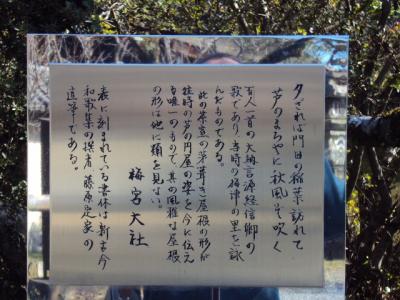 夕されば門田の稲葉訪れて
芦のまろやに秋風ぞ吹く
百人一首の大納言源経信卿の
歌であり、当時の梅津の里を詠
んだものである。
此の茶室の茅葺き屋根の形が
往時の芦の円屋の姿を今に伝え
る唯一のもので、其の風雅な屋根
の形は他に類を見ない。
梅宮大社
表に刻まれている書体は新古今
和歌集の撰者 藤原定家の
直筆である。